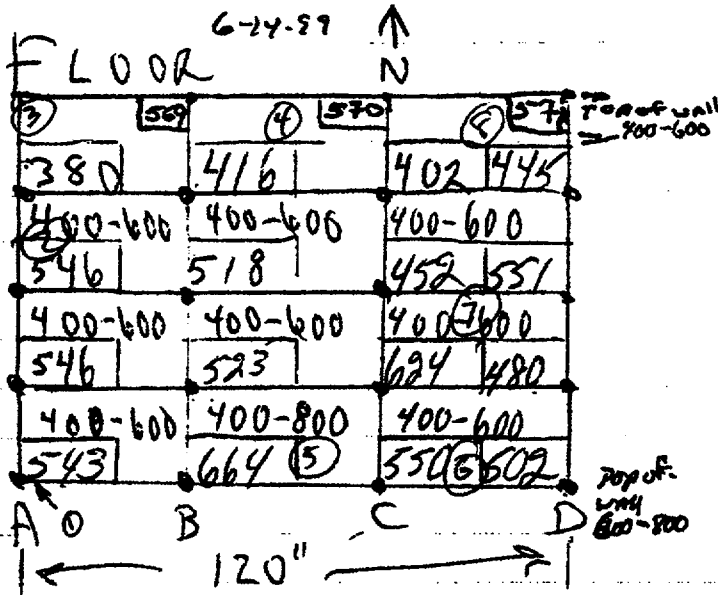 6-24-99
FLOOR N
3 569 4 570 8 571 Top of wall
400-600
380 416 402 445
400-600 400-600 400-600
2
546 518 452 551
400-600 400-600 400-600
7
546 523 624 480
400-600 400-800 400-600
543 664 5 550 6 502
A 1 B C D Top of
wall
600-800
120"